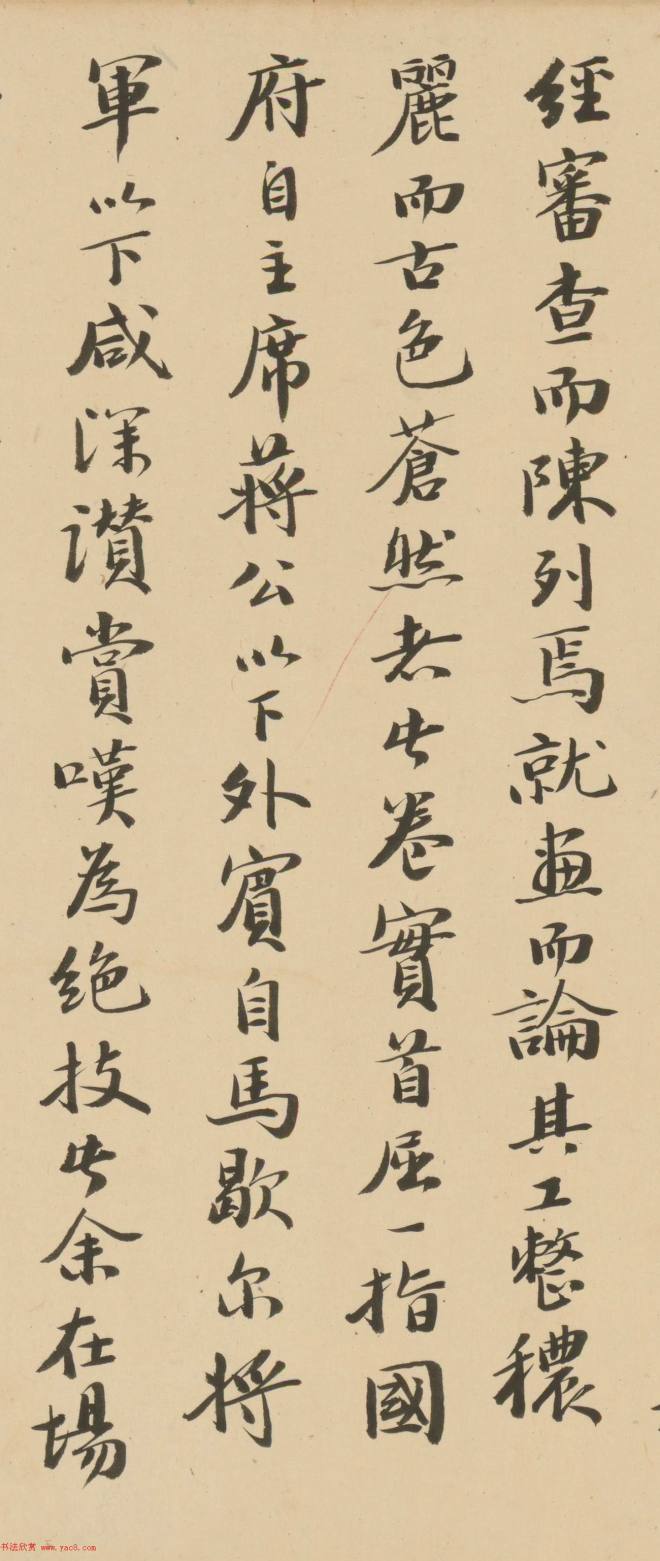 經審查而陳列焉就畫而論其工整穠
麗而古色蒼然者此卷實首屈一指國
府自主席蔣公以下外賓自馬歇尔將
軍以下咸深讚賞嘆為絕技此余在場
书法欣赏 www.yac8.com